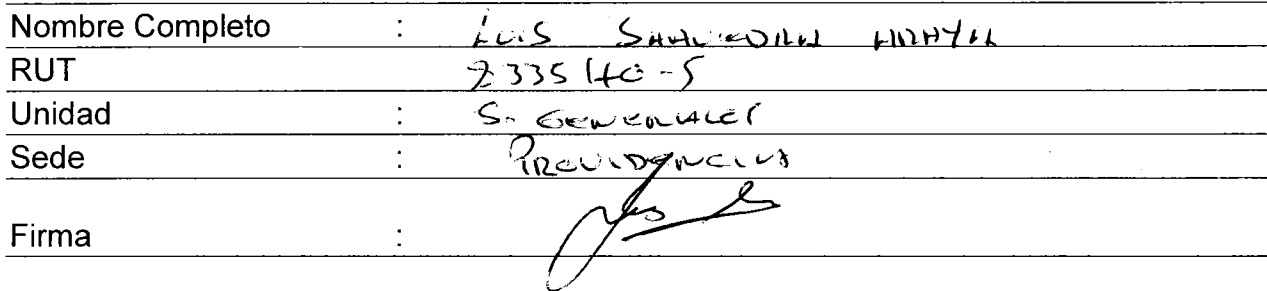 Nombre Completo : LUIS SAAVEDRA ARAYA
RUT
Unidad : S. GENERALES
Sede : PROVIDENCIA
Firma :